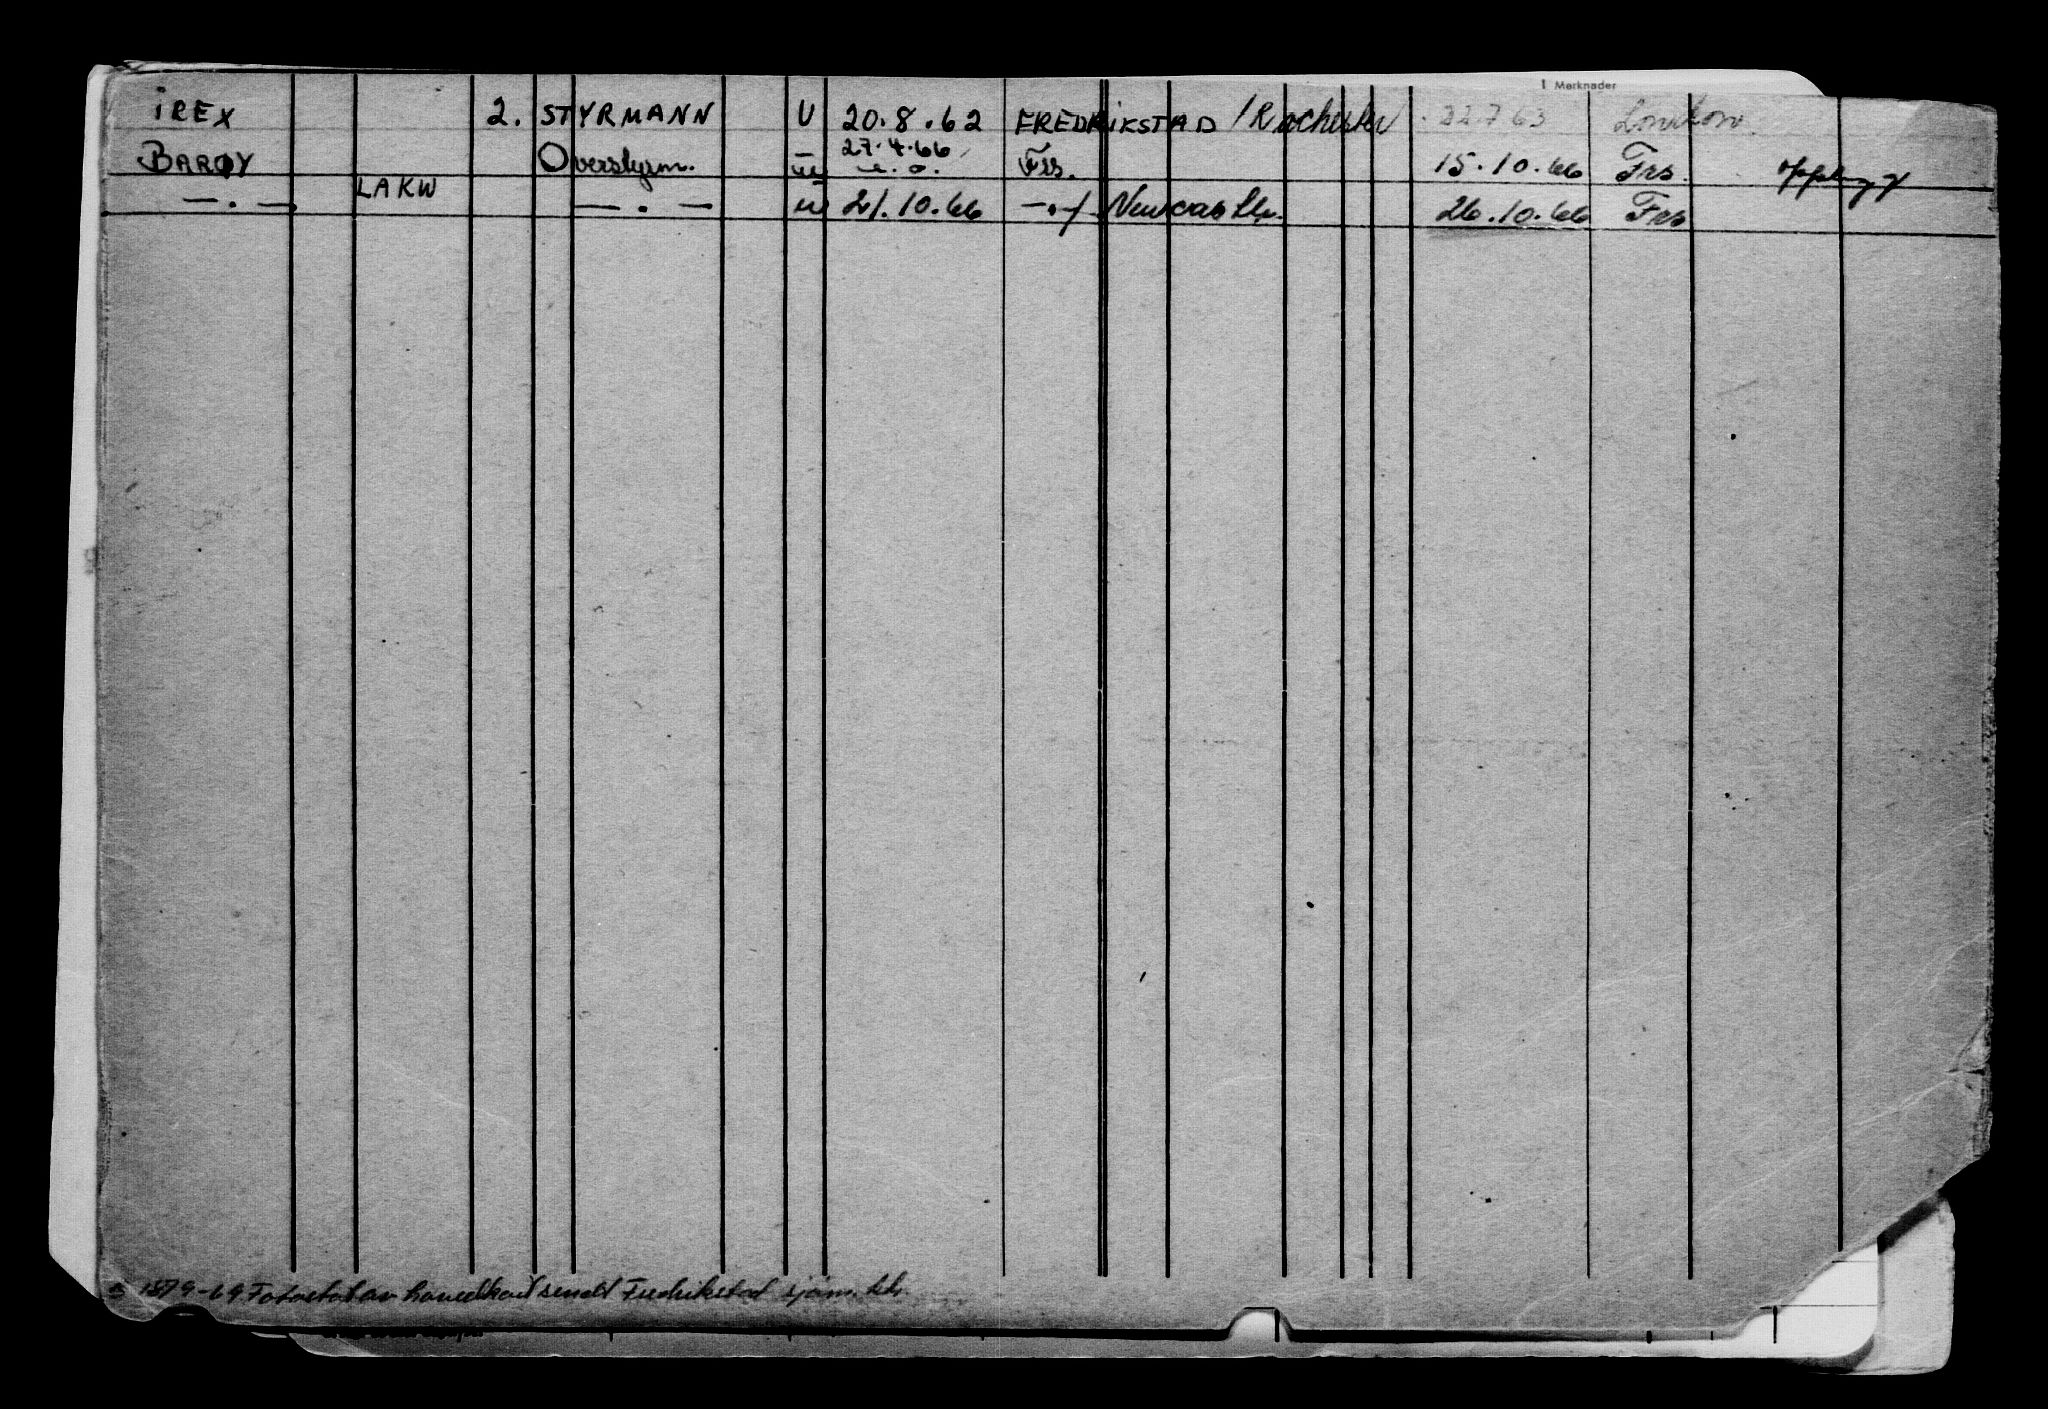 Merknader
IREX 2. STYRMANN U 20.8.62 FREDRIKSTAD / Rochester 22.7.63 London
27.4.66
BARØY Overstyrm. u u.o. Frs. 15.10.66 Frs.
LAKW
— . — — . — u 21.10.66 — . — / Newcastle. 26.10.66 Frs
15/9-69 Fotostat av hovedkort sendt Fredrikstad sjøm. ktr.